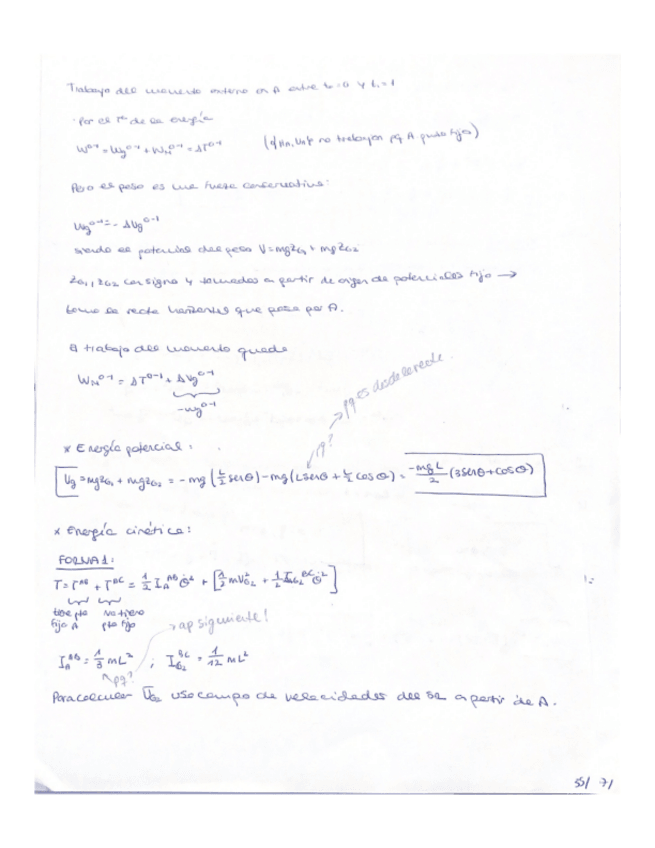 Trabajo del momento externo en A entre t₀=0 y t₁=1
· Por el Tª de la energía
W⁰⁻¹ = Wg⁰⁻¹ + W_M⁰⁻¹ = ΔT⁰⁻¹ no trabajan pq A punto fijo)
Pero el peso es una fuerza conservativa:
Wg⁰⁻¹ = - ΔVg⁰⁻¹
siendo el potencial del peso V = mgz_G₁ + mgz_G₂
z_G₁, z_G₂ con signo y tomados a partir de origen de potenciales fijo →
tomo la recta horizontal que pasa por A.
El trabajo del momento queda
W_M⁰⁻¹ = ΔT⁰⁻¹ + ΔVg⁰⁻¹
-Wg⁰⁻¹
pq es desde la recta.
p?
* Energía potencial:
Vg = mgz_G₁ + mgz_G₂ = -mg (L/2 senθ) - mg (L senθ + L/2 cosθ) = -mgL/2 (3senθ + cosθ)
* Energía cinética:
FORMA 1:
T = T^AB + T^BC = 1/2 I_A^AB θ̇² + [1/2 m v_G₂² + 1/2 I_G₂^BC θ̇²]
tiene pto No tiene
fijo A pto fijo
→ ap siguiente!
I_A^AB = 1/3 mL² ; I_G₂^BC = 1/12 mL²
pq?
Para calcular v̄_G₂ uso campo de velocidades del SR a partir de A.
35/71